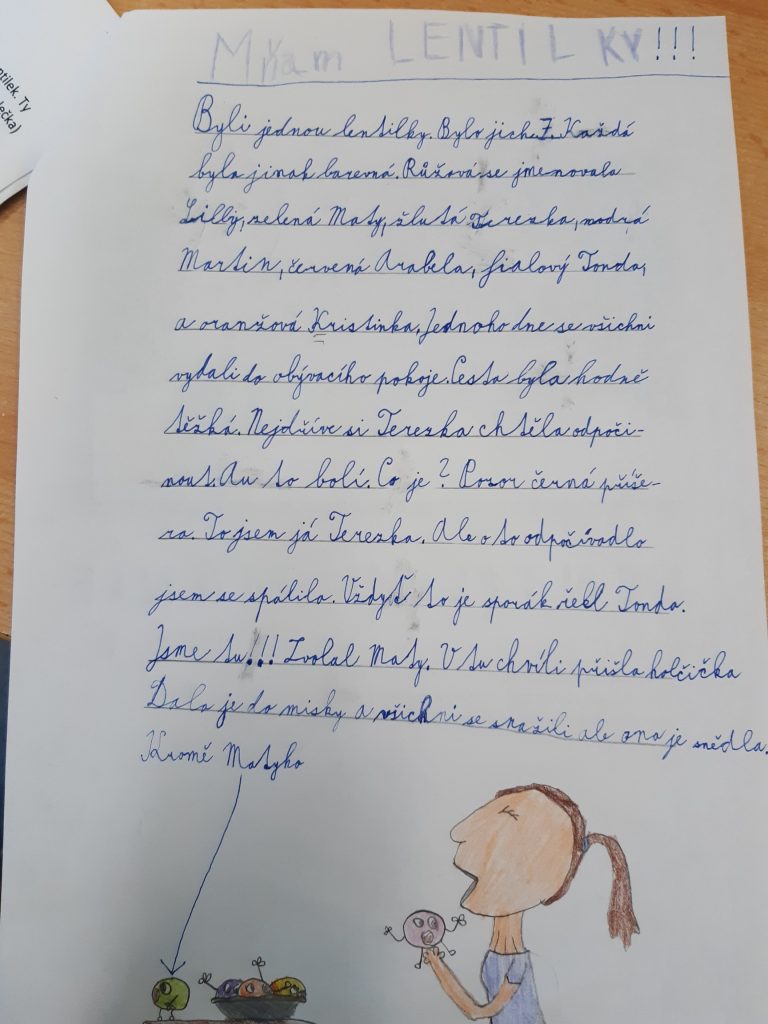 ntilek. Ty
ečka)
Mňam LENTILKY!!!
Byli jednou lentilky. Bylo jich 7. Každá
byla jinak barevná. Růžová se jmenovala
Lilly, zelená Maty, žlutá Terezka, modrá
Martin, červená Arabela, fialový Tonda,
a oranžová Kristinka. Jednoho dne se všichni
vydali do obývacího pokoje. Cesta byla hodně
těžká. Nejdříve si Terezka chtěla odpoči-
nout. Au to bolí. Co je? Pozor černá příše-
ra. To jsem já Terezka. Ale o to odpočívadlo
jsem se spálila. Vždyť to je sporák řekl Tonda.
Jsme tu!!! Zvolal Maty. V tu chvíli přišla holčička
Dala je do misky a všichni se snažili ale ona je snědla.
Kromě Matyho